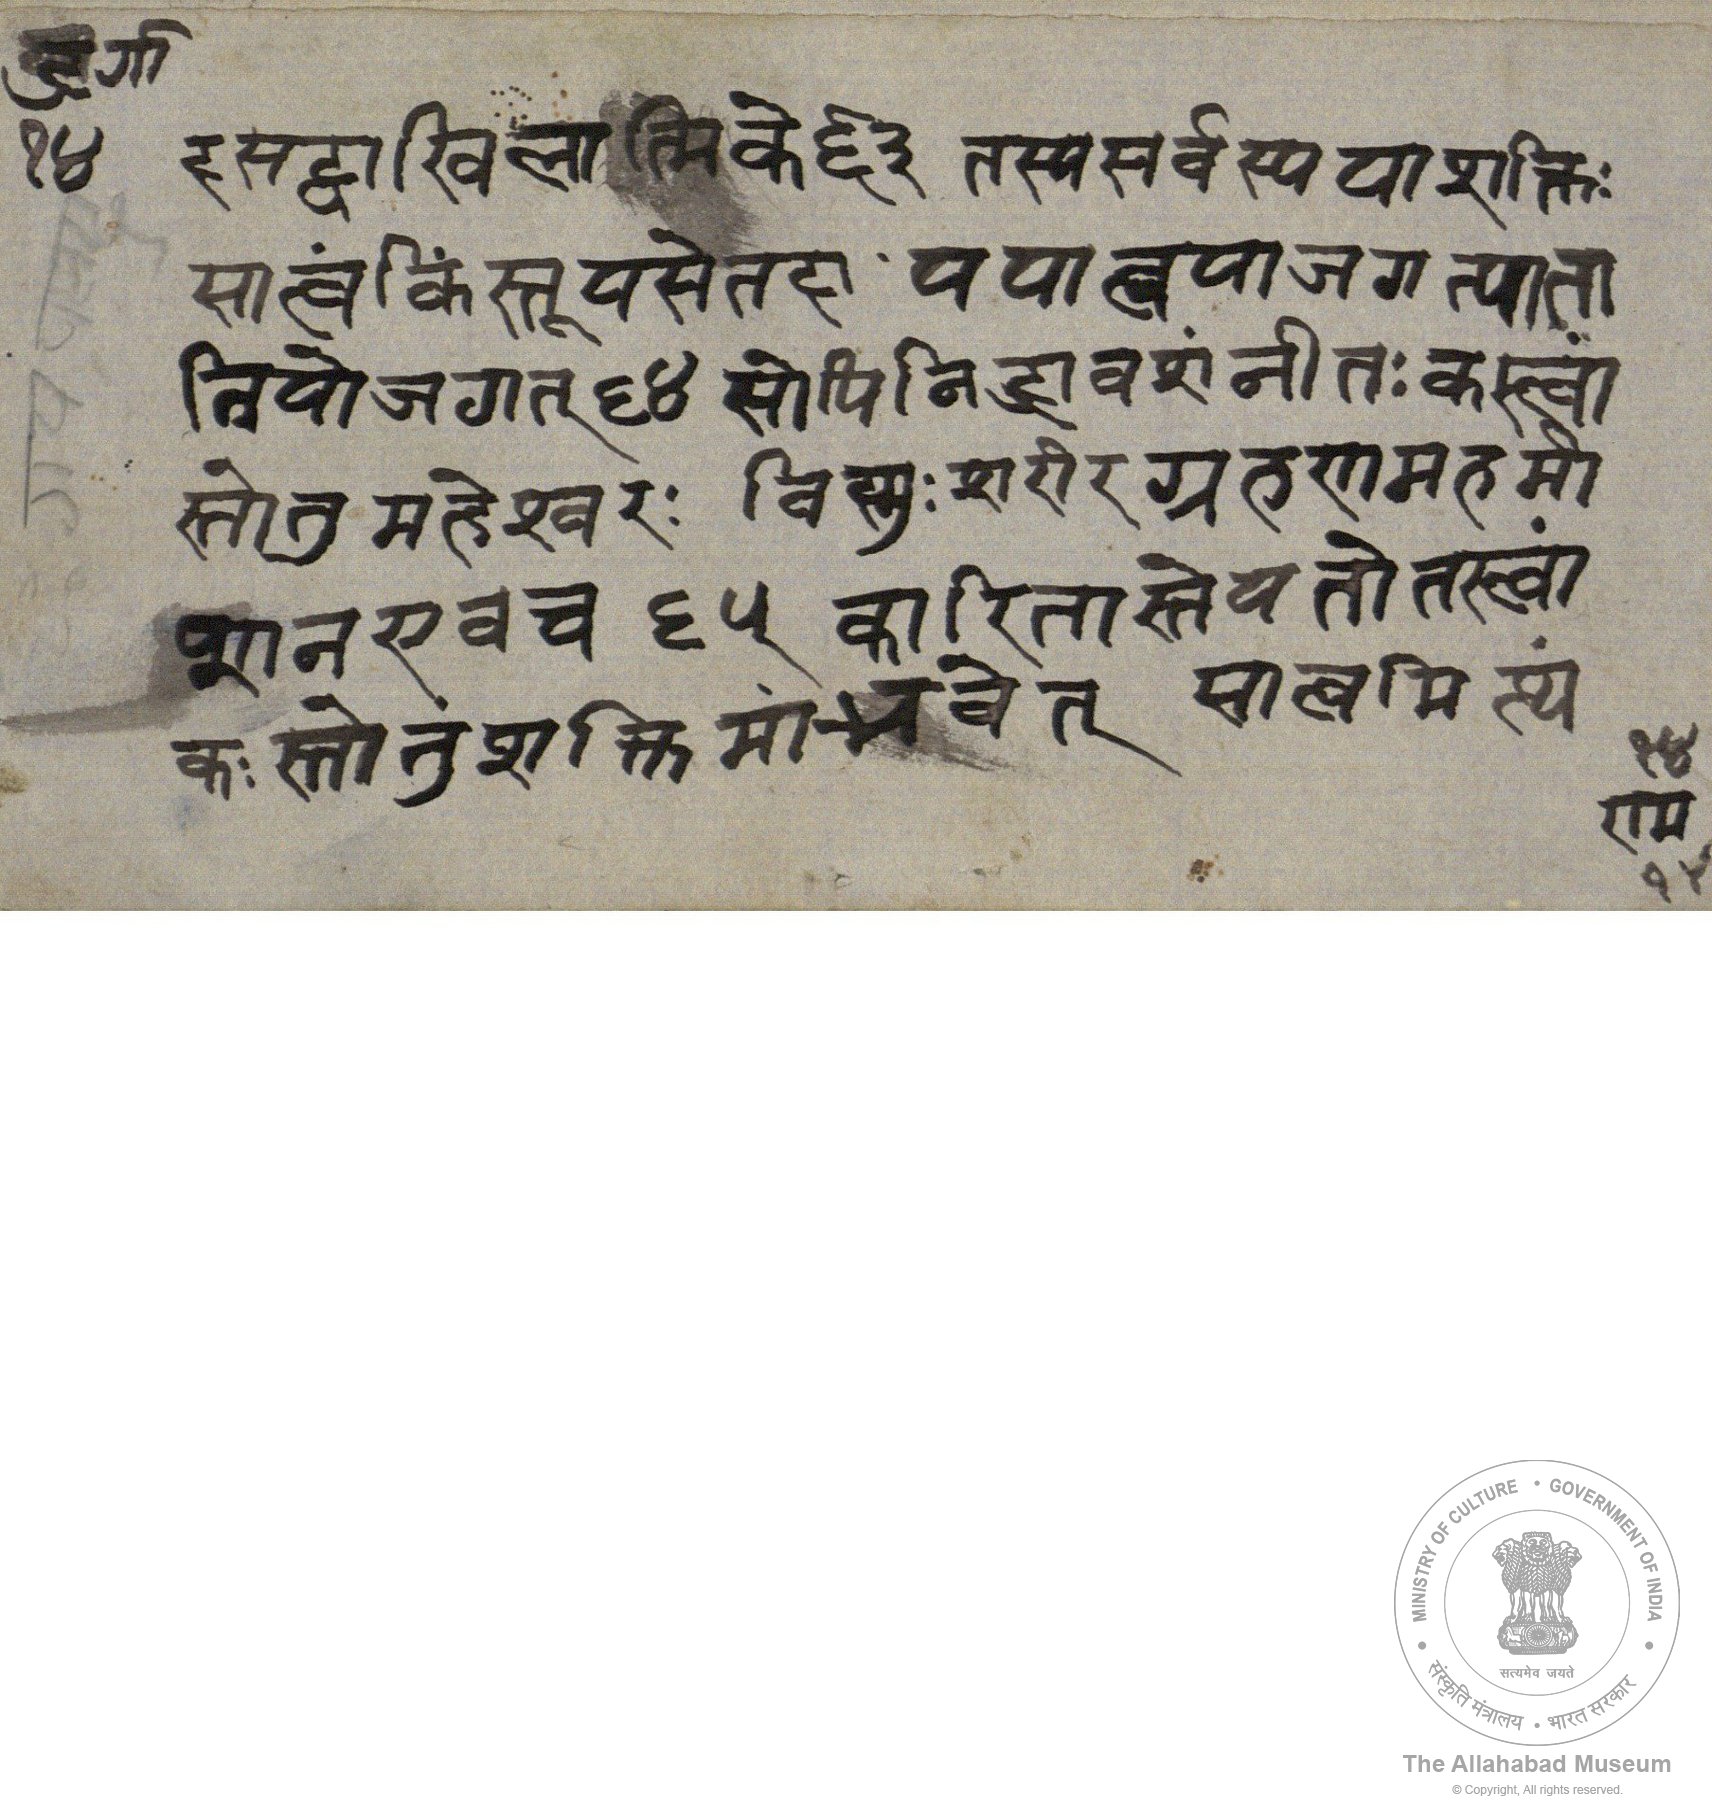 दुर्गा
१४
दसद्वाखिलात्मिके ६३ तस्यसर्वस्ययाशक्तिः
सात्वंकिंस्तूयसेतदा ययात्वयाजगत्पाता
त्तियोजगत् ६४ सोपिनिद्रावशंनीतः कस्त्वां
स्तोतुमहेश्वरः विष्णुः शरीरग्रहणमहमी
शानएवच ६५ कारितास्तेयतोतस्त्वां
कः स्तोतुंशक्तिमांभवेत् सात्वमित्थं
१४
राम
MINISTRY OF CULTURE • GOVERNMENT OF INDIA
सत्यमेव जयते
संस्कृति मंत्रालय • भारत सरकार
The Allahabad Museum
© Copyright, All rights reserved.